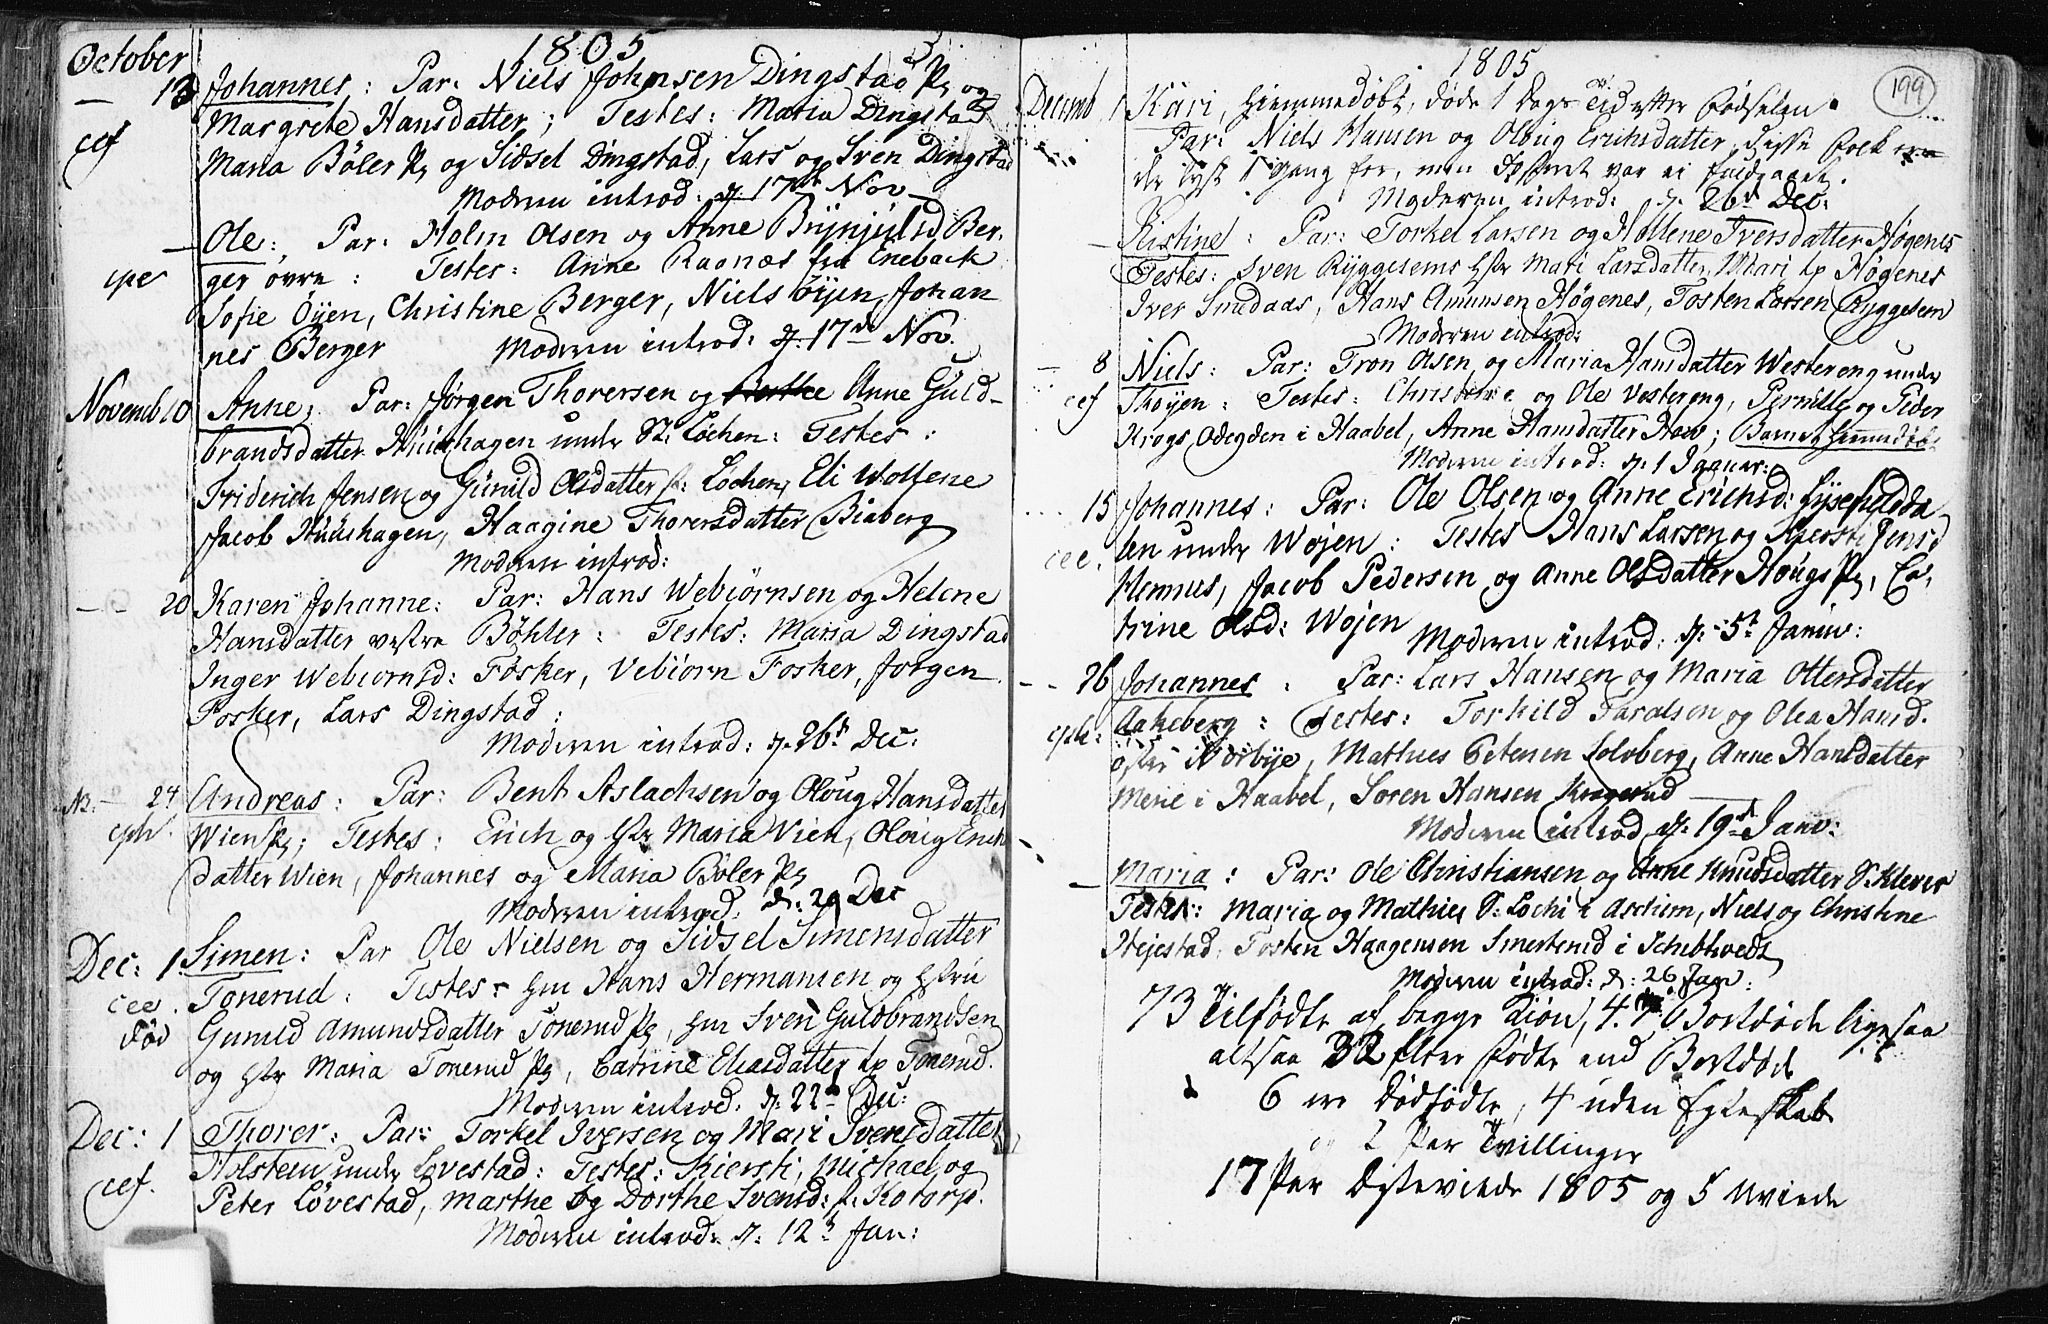 1805
October
— 13 Johannes: Par: Niels Johnsen Dingstad Pg og
cef Margrete Hansdatter; Testes: Maria Dingstad
Maria Böler Pg og Sidsel Dingstad, Lars og Sven Dingstad
Moderen introd: d: 17de Nov
— Ole: Par: Holm Olsen og Anne Brÿnjulsd Ber-
ger övre: Testes: Anne Ragnas fra Eneback
Sofie Öÿen, Christine Berger, Niels Öÿen, Johan
nes Berger Moderen introd: d: 17de Nov.
Novemb 10 Anne; Par: Jörgen Thorersen og Anne Guld-
brandsdatter Huushagen under St: Löchen: Testes:
Friderich Jensen og Gunild Olsdatter Löchen, Eli
Jacob Huushagen, Haagine Thorersdatter Biaberg
Moderen introd:
— 20 Karen Johanne: Par: Hans Webiörnsen og Helene
Hansdatter vestre Böhler: Testes: Maria Dingstad
Inger Webiörnsd: Fosker, Vebiörn Fosker, Jörgen
Fosker, Lars Dingstad:
Moderen introd: d: 26de Dec:
NB: — 24 Andreas: Par: Bent Aslachsen og Oloug Hansdatter
Wien Pg; Testes: Erich og Hstr Maria Vien, Oloug Erich
datter Wien, Johannes og Maria Böler Pg
Moderen introd: d: 29 Dec
Dec: 1 Simen: Par Ole Nielsen og Sidsel Simensdatter
cee. Tonerud: Testes: Hans Hermansen og Hstru
död Gunild Amundsdatter Tonerud Pg, Sven Guldbrandsen
og Hstr Maria Tonerud Pg, Catrine Eliasdatter tp Tonerud.
Moderen introd: d: 22de Dec:
Dec: 1 Thorer: Par: Torkel Iversen og Mari Svensdatter
cef. Holsteen under Lövestad: Testes: Kiersti, Michael og
Peter Lövestad, Marthe og Dorthe Svensd: Kotorp.
Moderen introd: d: 12te Jan:
1805
199
Decemb 1 Kari, hiemmedöbt, döde 1 Dags Tid efter födselen.
Par: Niels Hansen og Oloug Erichsdatter, disse folk ere
de lyst 1 gang for, men var ei fuldgaaet.
Moderen introd: d. 26de Dec:
— Kistine: Par: Torkel Larsen og Hellene Iversdatter Högenes
Testes: Sven Ryggesems Hstr Mari Larsdatter, Mari tp Högenes
Iver Smedaas, Hans Amunsen Högenes, Tosten Larsen Ryggesem
Moderen introd:
— 8 Niels: Par: Tron Olsen og Maria Hansdatter Westereng under
cef Thoÿen: Testes: Christine og Ole Vestereng, Pernille og Peder
Krogs Ödegden i Haabel, Anne Hansdatter; Barnet hiemmdöbt
Moderen introd: d: 1 Januar:
15 Johannes: Par: Ole Olsen og Anne Erichsd:
cee. en under Wöjen: Testes Hans Larsen og Kiersti Jensd
Hennes, Jacob Pedersen og Anne Olsdatter Hougs Pg, Ca-
trine Olsd: Wöjen Moderen introd: d: 5te Januar:
— 26 Johannes: Par: Lars Hansen og Maria Ottersdatter
eph: Aakeberg: Testes: Torkild Taralsen og Olea Hansd.
öster Norbÿe, Mathies Petersen Solvberg, Anne Hansdatter
Merie i Haabel, Soren Hansen Kragerud
Moderen introd d: 19de Janv:
— Maria: Par: Ole Christiansen og Anne Knudsdatter S: Klever
Testes: Maria og Mathies S: Lochi i Aschim, Niels og Christine
Hejestad, Tosten Haagensen Smertenud i Schibtvedt
Moderen introd: d: 26 Jan:
73 Tilfödte af begge Kiön, 4. Bortdöde ligesaa
altsaa 32 flere födte end Bortdöde
6 ere Dödfödte, 4 uden Egteskab
2 Par Tvillinger
17 Par Egteviede 1805 og 5 uviede